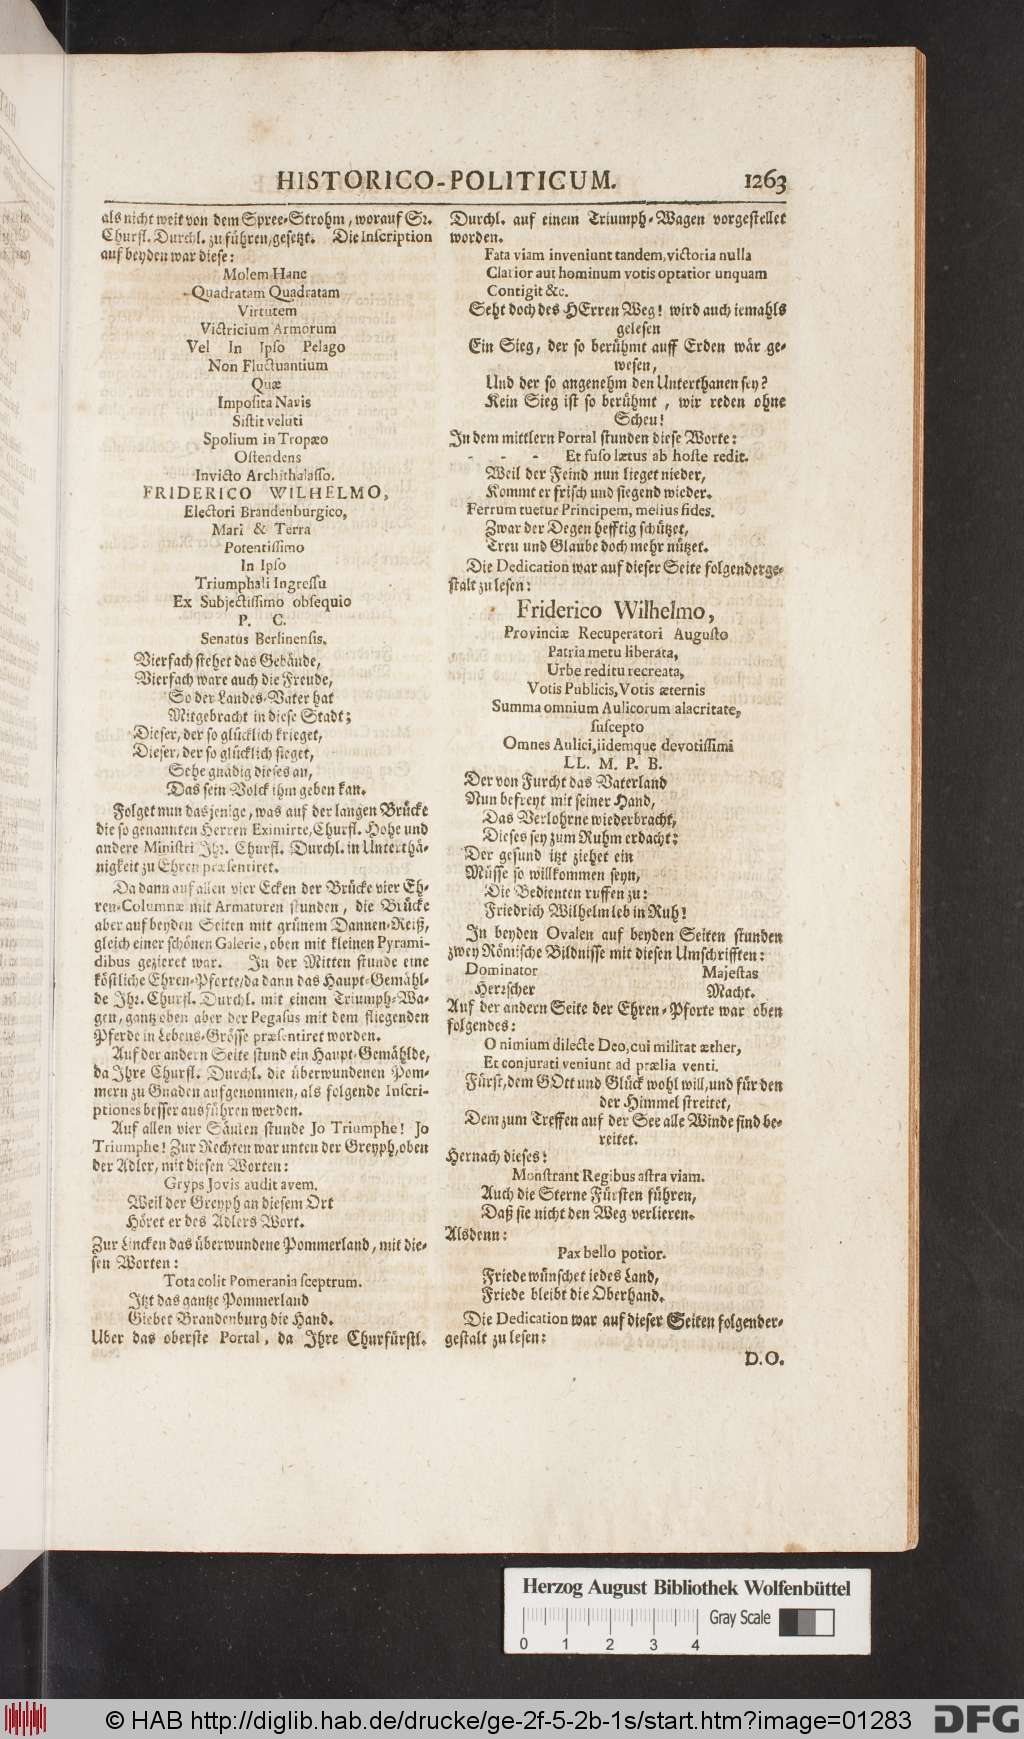 HISTORICO-POLITICUM. 1263
als nicht weit von dem Spree-Strohm, worauf Sr.
Churfl. Durchl. zu führen, gesetzt. Die Inscription
auf beyden war diese:
Molem Hanc
Quadratam Quadratam
Virtutem
Victricium Armorum
Vel In Ipso Pelago
Non Fluctuantium
Quæ
Imposita Navis
Sistit veluti
Spolium in Tropæo
Ostendens
Invicto Archithalasso.
FRIDERICO WILHELMO,
Electori Brandenburgico,
Mari & Terra
Potentissimo
In Ipso
Triumphali Ingressu
Ex Subjectissimo obsequio
P. C.
Senatus Berlinensis.
Vierfach stehet das Gebäude,
Vierfach ware auch die Freude,
So der Landes-Vater hat
Mitgebracht in diese Stadt;
Dieser, der so glücklich krieget,
Dieser, der so glücklich sieget,
Sehe gnädig dieses an,
Das sein Volck ihm geben kan.
Folget nun dasjenige, was auf der langen Brücke
die so genannten Herren Eximirte, Churfl. Hohe und
andere Ministri Ihr. Churfl. Durchl. in Unterthä-
nigkeit zu Ehren præsentiret.
Da dann auf allen vier Ecken der Brücke vier Eh-
ren-Columnæ mit Armaturen stunden, die Brücke
aber auf beyden Seiten mit grünem Dannen-Reiß,
gleich einer schönen Galerie, oben mit kleinen Pyrami-
dibus gezieret war. In der Mitten stunde eine
köstliche Ehren-Pforte/da dann das Haupt-Gemähl-
de Ihr. Churfl. Durchl. mit einem Triumph-Wa-
gen, gantz oben aber der Pegasus mit dem fliegenden
Pferde in Lebens-Grösse præsentiret worden.
Auf der andern Seite stund ein Haupt-Gemählde,
da Ihre Churfl. Durchl. die überwundenen Pom-
mern zu Gnaden aufgenommen, als folgende Inscri-
ptiones besser ausführen werden.
Auf allen vier Säulen stunde Jo Triumphe! Jo
Triumphe! Zur Rechten war unten der Greyph, oben
der Adler, mit diesen Worten:
Gryps Jovis audit avem.
Weil der Greyph an diesem Ort
Höret er des Adlers Wort.
Zur Lincken das überwundene Pommerland, mit die-
sen Worten:
Tota colit Pomerania sceptrum.
Itzt das gantze Pommerland
Giebet Brandenburg die Hand.
Uber das oberste Portal, da Ihre Churfürstl.
Durchl. auf einem Triumph-Wagen vorgestellet
worden.
Fata viam inveniunt tandem, victoria nulla
Clarior aut hominum votis optatior unquam
Contigit &c.
Seht doch des HErren Weg! wird auch iemahls
gelesen
Ein Sieg, der so berühmt auff Erden wär ge-
wesen,
Und der so angenehm den Unterthanen sey?
Kein Sieg ist so berühmt, wir reden ohne
Scheu!
In dem mittlern Portal stunden diese Worte:
- - - Et fuso lætus ab hoste redit.
Weil der Feind nun lieget nieder,
Kommt er frisch und siegend wieder.
Ferrum tuetur Principem, melius fides.
Zwar der Degen hefftig schützet,
Treu und Glaube doch mehr nützet.
Die Dedication war auf dieser Seite folgenderge-
stalt zu lesen:
Friderico Wilhelmo,
Provinciæ Recuperatori Augusto
Patria metu liberata,
Urbe reditu recreata,
Votis Publicis, Votis æternis
Summa omnium Aulicorum alacritate,
suscepto
Omnes Aulici, iidemque devotissimi
LL. M. P. B.
Der von Furcht das Vaterland
Nun befreyt mit seiner Hand,
Das Verlohrne wiederbracht,
Dieses sey zum Ruhm erdacht;
Der gesund itzt ziehet ein
Müsse so willkommen seyn,
Die Bedienten ruffen zu:
Friedrich Wilhelm leb in Ruh!
In beyden Ovalen auf beyden Seiten stunden
zwey Römische Bildnisse mit diesen Umschrifften:
Dominator Majestas
Herrscher Macht.
Auf der andern Seite der Ehren-Pforte war oben
folgendes:
O nimium dilecte Deo, cui militat æther,
Et conjurati veniunt ad prælia venti.
Fürst, dem GOtt und Glück wohl will, und für den
der Himmel streitet,
Dem zum Treffen auf der See alle Winde sind be-
reitet.
Hernach dieses:
Monstrant Regibus astra viam.
Auch die Sterne Fürsten führen,
Daß sie nicht den Weg verlieren.
Alsdenn:
Pax bello potior.
Friede wünschet iedes Land,
Friede bleibt die Oberhand.
Die Dedication war auf dieser Seiten folgender-
gestalt zu lesen:
D. O.
Herzog August Bibliothek Wolfenbüttel
Gray Scale
0 1 2 3 4
© HAB http://diglib.hab.de/drucke/ge-2f-5-2b-1s/start.htm?image=01283
DFG